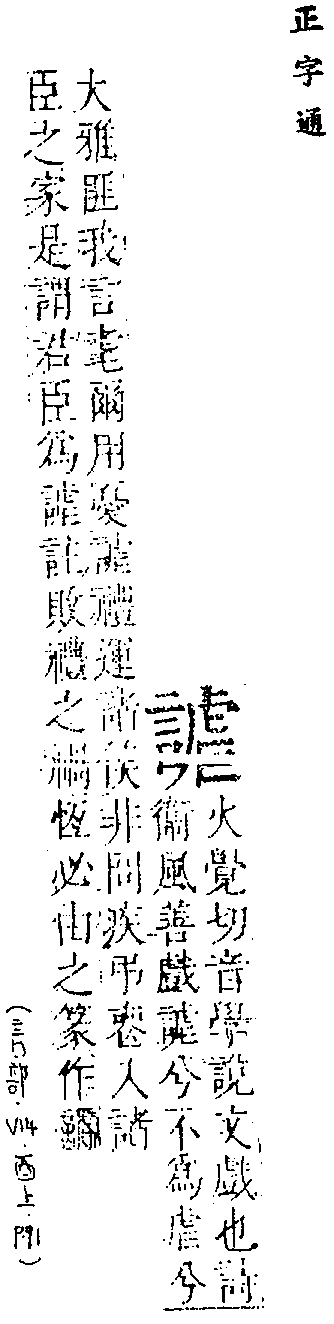 正字通
謔
火覺切音學說文戲也詩
衞風善戲謔兮不爲虐兮
大雅匪我言耄爾用憂謔禮運諸侯非問疾弔喪入諸
臣之家是謂君臣爲謔註敗禮之禍恆必由之篆作
(言部．V14．酉上．P91)